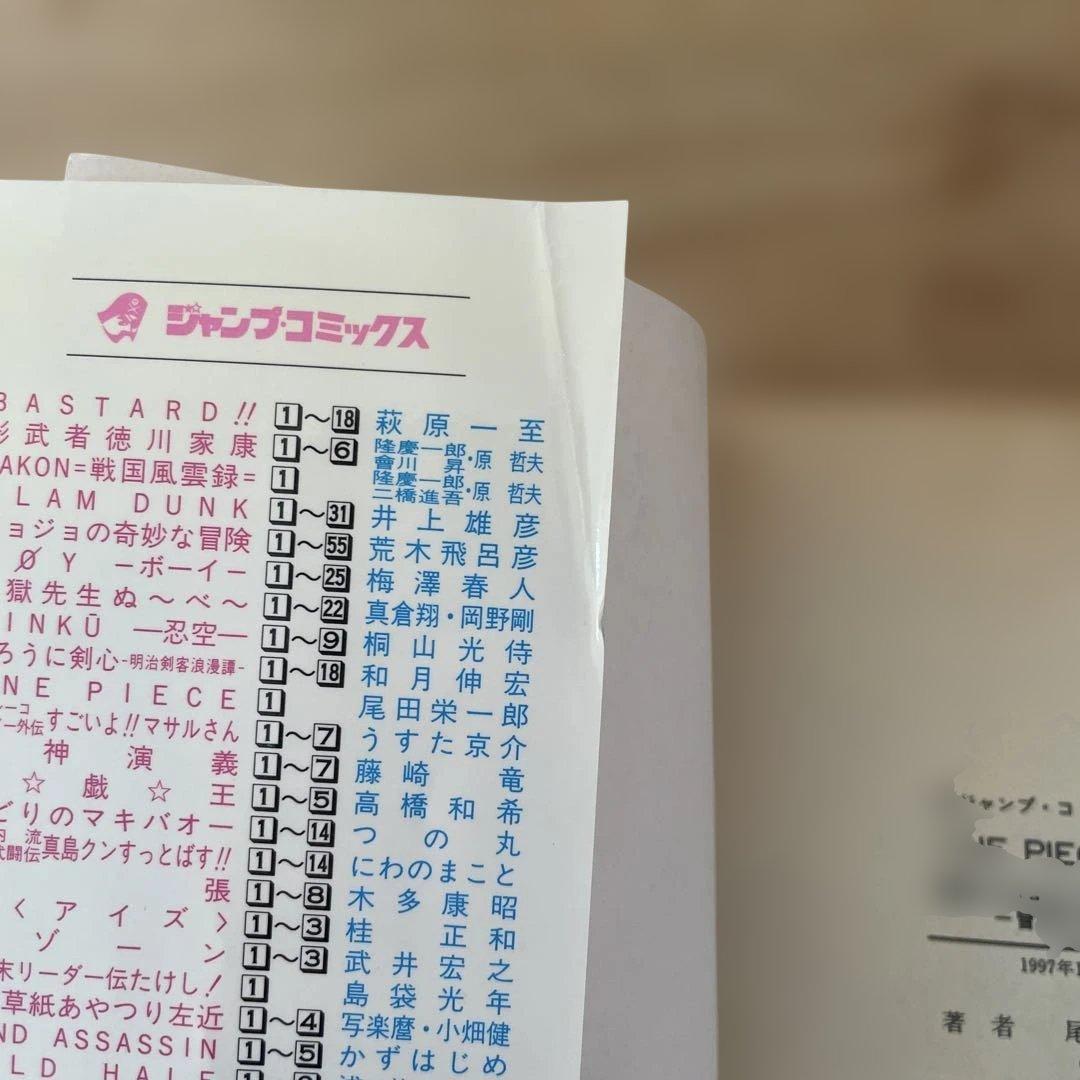 ジャンプ・コミックス
BASTARD!! 1〜18 萩原一至
影武者徳川家康 1〜6 隆慶一郎・會川昇・原哲夫
AKON=戦国風雲録= 1 隆慶一郎・二橋進吾・原哲夫
LAM DUNK 1〜31 井上雄彦
ョジョの奇妙な冒険 1〜55 荒木飛呂彦
ØY －ボーイ－ 1〜25 梅澤春人
獄先生ぬ〜べ〜 1〜22 真倉翔・岡野剛
INKŪ ―忍空― 1〜9 桐山光侍
ろうに剣心-明治剣客浪漫譚- 1〜18 和月伸宏
NE PIECE 1 尾田栄一郎
ーコ
ー外伝すごいよ!!マサルさん 1〜7 うすた京介
神演義 1〜7 藤崎竜
☆戯☆王 1〜5 高橋和希
どりのマキバオー 1〜14 つの丸
流
闘伝真島クンすっとばす!! 1〜14 にわのまこと
張 1〜8 木多康昭
〈アイズ〉 1〜3 桂正和
ゾーン 1〜3 武井宏之
末リーダー伝たけし! 1 島袋光年
草紙あやつり左近 1〜4 写楽麿・小畑健
ND ASSASSIN 1〜5 かずはじめ
LD HALF
ジャンプ・コ
NE PIEC
1997年1
著者 尾